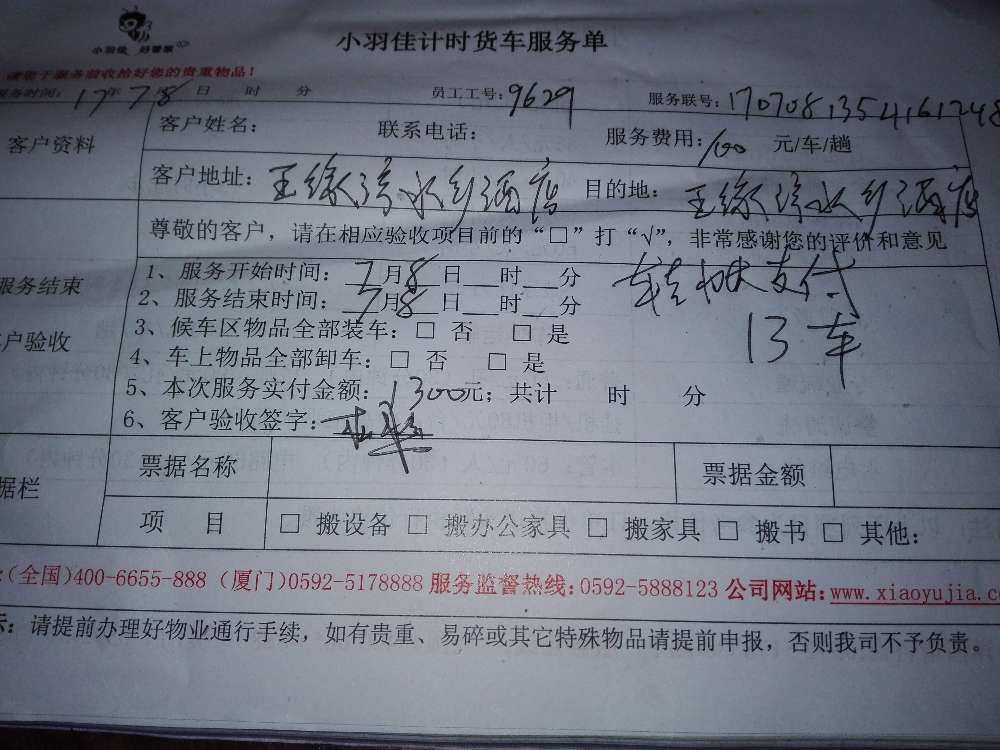 小羽佳 好管家
小羽佳计时货车服务单
请您于服务前收拾好您的贵重物品!
服务时间: 17年7月8日 时 分 员工工号: 9629 服务联号: 1707081354161248
客户资料
客户姓名: 联系电话: 服务费用: 100 元/车/趟
客户地址: 水乡酒店 目的地: 水乡酒店
尊敬的客户,请在相应验收项目前的“□”打“√”,非常感谢您的评价和意见
服务结束
户验收
1、服务开始时间: 7月8日___时___分 支付
2、服务结束时间: 7月8日___时___分
13车
3、候车区物品全部装车: □ 否 □ 是
4、车上物品全部卸车: □ 否 □ 是
5、本次服务实付金额: 1300元; 共计 时 分
6、客户验收签字:
据栏
票据名称 票据金额
项 目 □ 搬设备 □ 搬办公家具 □ 搬家具 □ 搬书 □ 其他:
:(全国)400-6655-888 (厦门)0592-5178888 服务监督热线: 0592-5888123 公司网站: www.xiaoyujia.co
示: 请提前办理好物业通行手续,如有贵重、易碎或其它特殊物品请提前申报,否则我司不予负责。